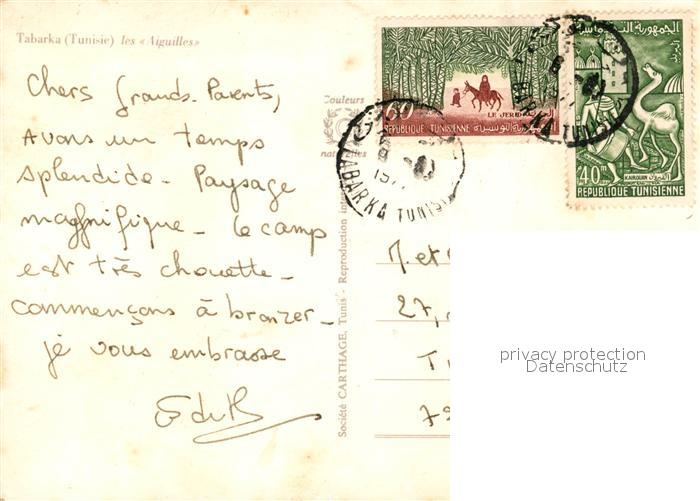 Tabarka (Tunisie) les «Aiguilles»
Chers Grands-Parents,
Avons un temps
splendide - Paysage
magnifique - le camp
est très chouette -
commençons à bronzer -
je vous embrasse
Couleurs
naturelles
Société CARTHAGE, Tunis - Reproduction inter
60
LE JERID
REPUBLIQUE TUNISIENNE الجمهورية التونسية
TABARKA TUNISIE
الجمهورية التونسية
40m
KAIROUAN القيروان
REPUBLIQUE TUNISIENNE
M. et
27,
T
7
privacy protection
Datenschutz